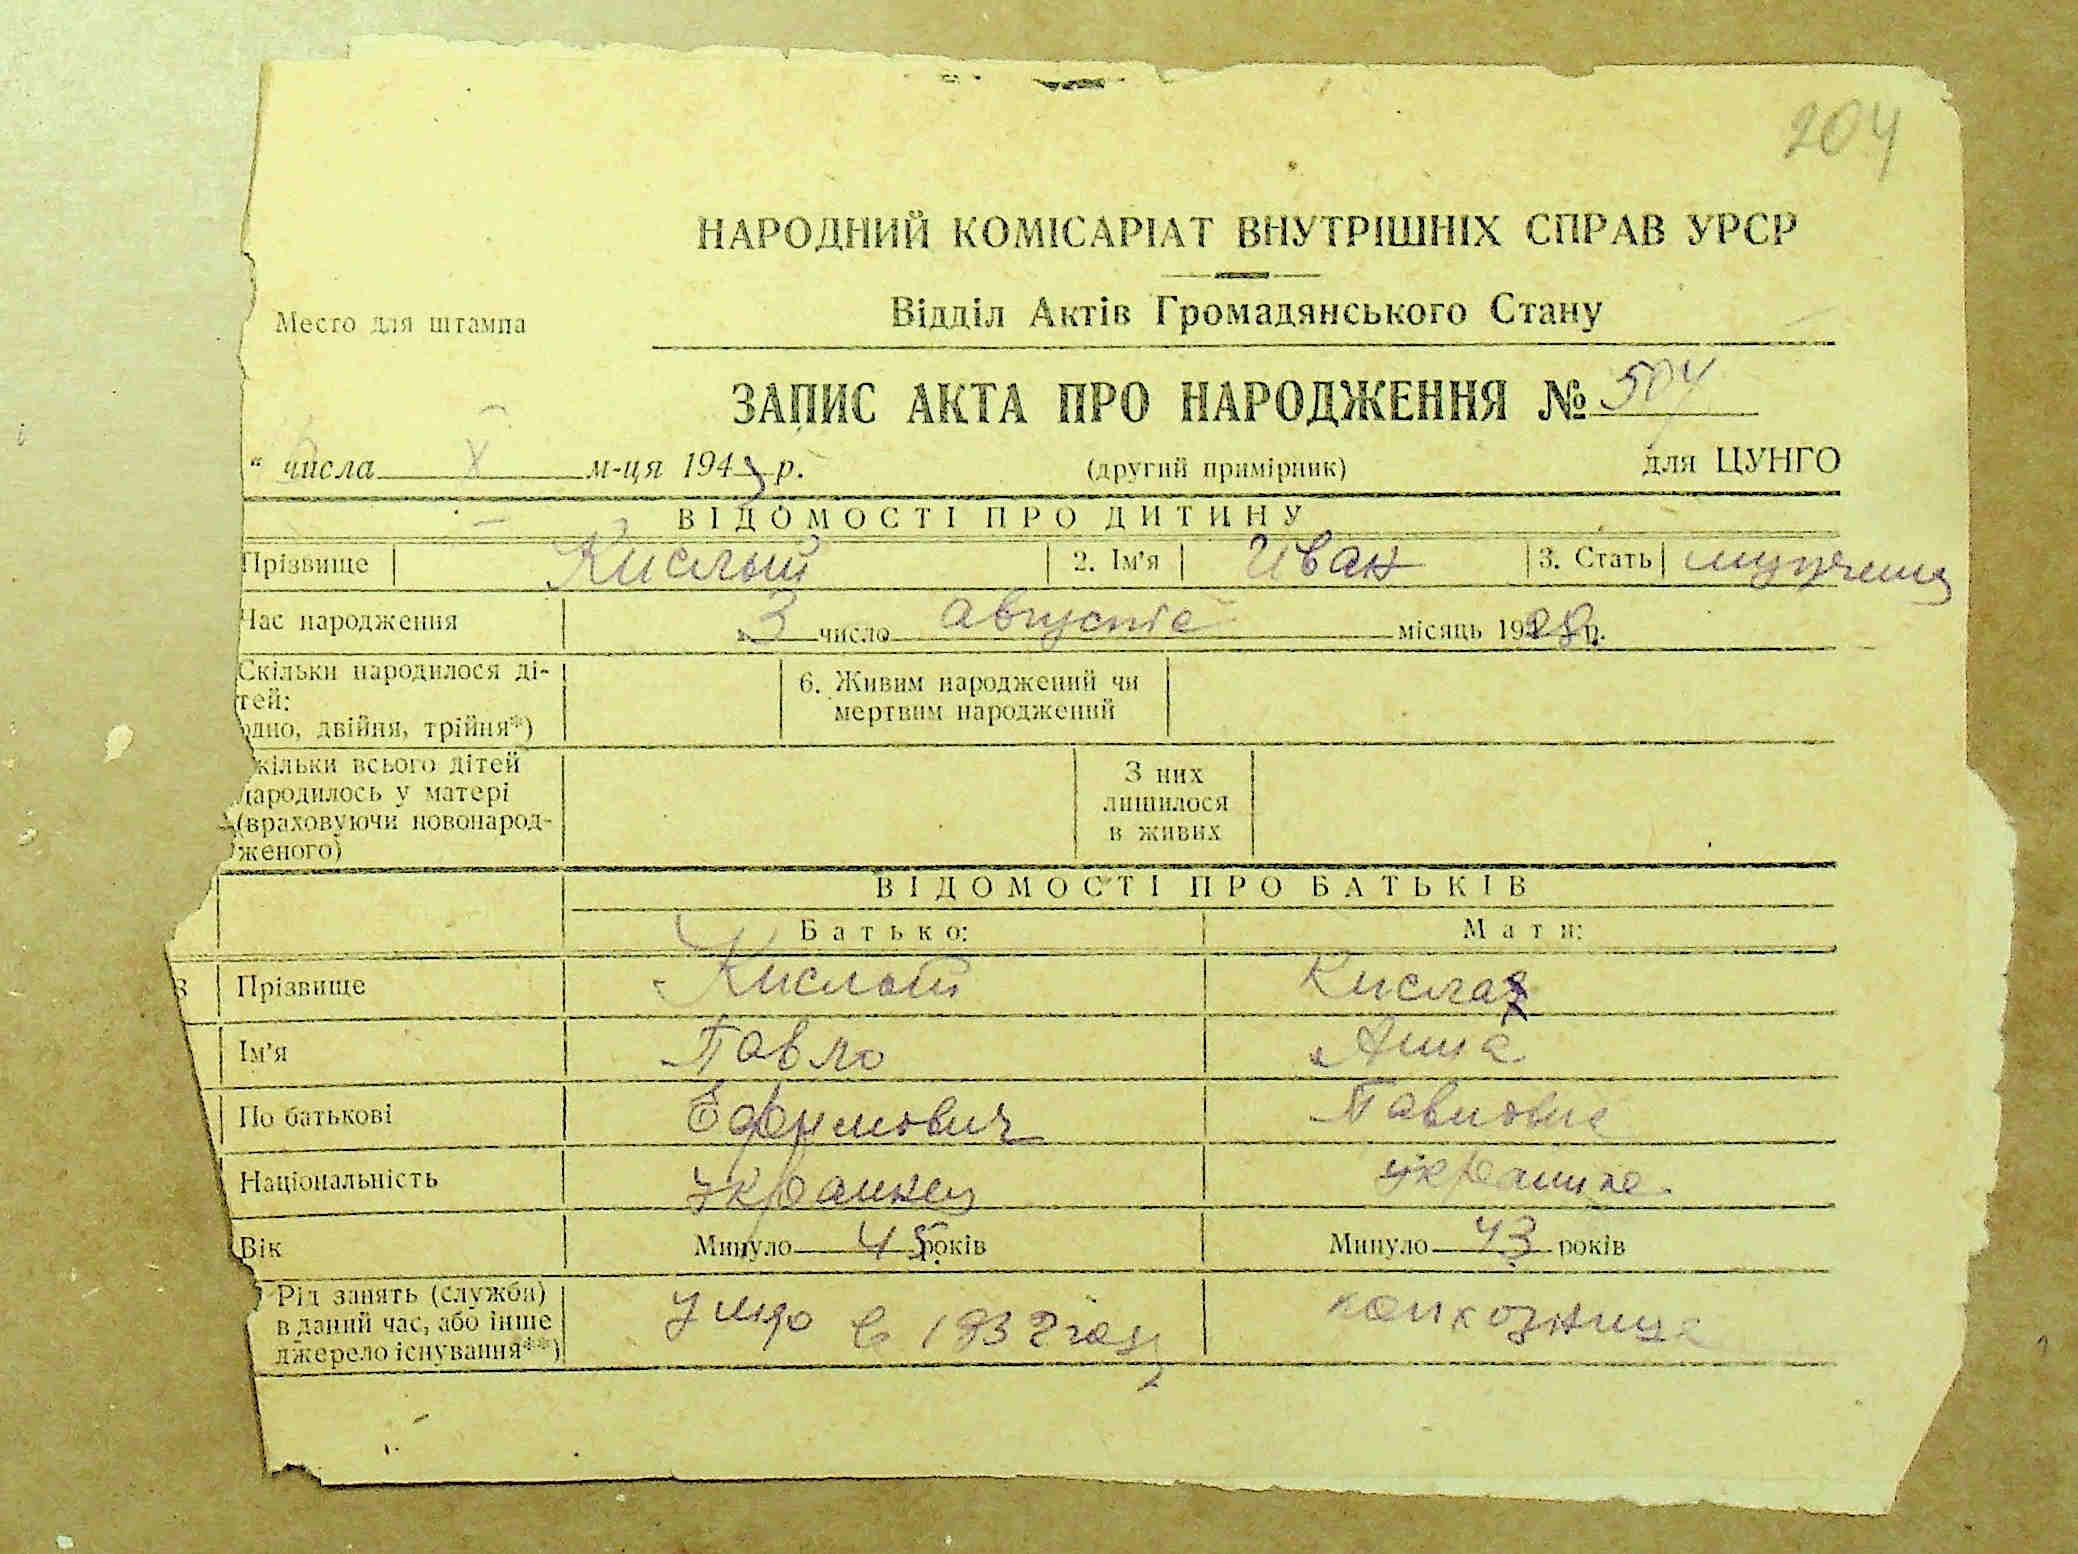 204
НАРОДНИЙ КОМІСАРІАТ ВНУТРІШНІХ СПРАВ УРСР
Відділ Актів Громадянського Стану
Место для штампа
ЗАПИС АКТА ПРО НАРОДЖЕННЯ № 504
" числа X м-ця 194 р. (другий примірник) для ЦУНГО
ВІДОМОСТІ ПРО ДИТИНУ
Прізвище Кислый 2. Ім'я Иван 3. Стать мужчина
Час народження 3 число августа місяць 1928 р.
Скільки народилося ді-
тей:
одно, двійня, трійня*)
6. Живим народжений чи
мертвим народжений
кільки всього дітей
народилось у матері
(враховуючи новонарод-
женого)
З них
лишилося
в живих
ВІДОМОСТІ ПРО БАТЬКІВ
Батько: Мати:
Прізвище Кислый Кислая
Ім'я Павло Анна
По батькові Ефимович Павловна
Національність украинец украинка
Вік Минуло 45 років Минуло 43 років
Рід занять (служби)
в даний час, або інше
джерело існування**)
умер в 193 году
колхозница